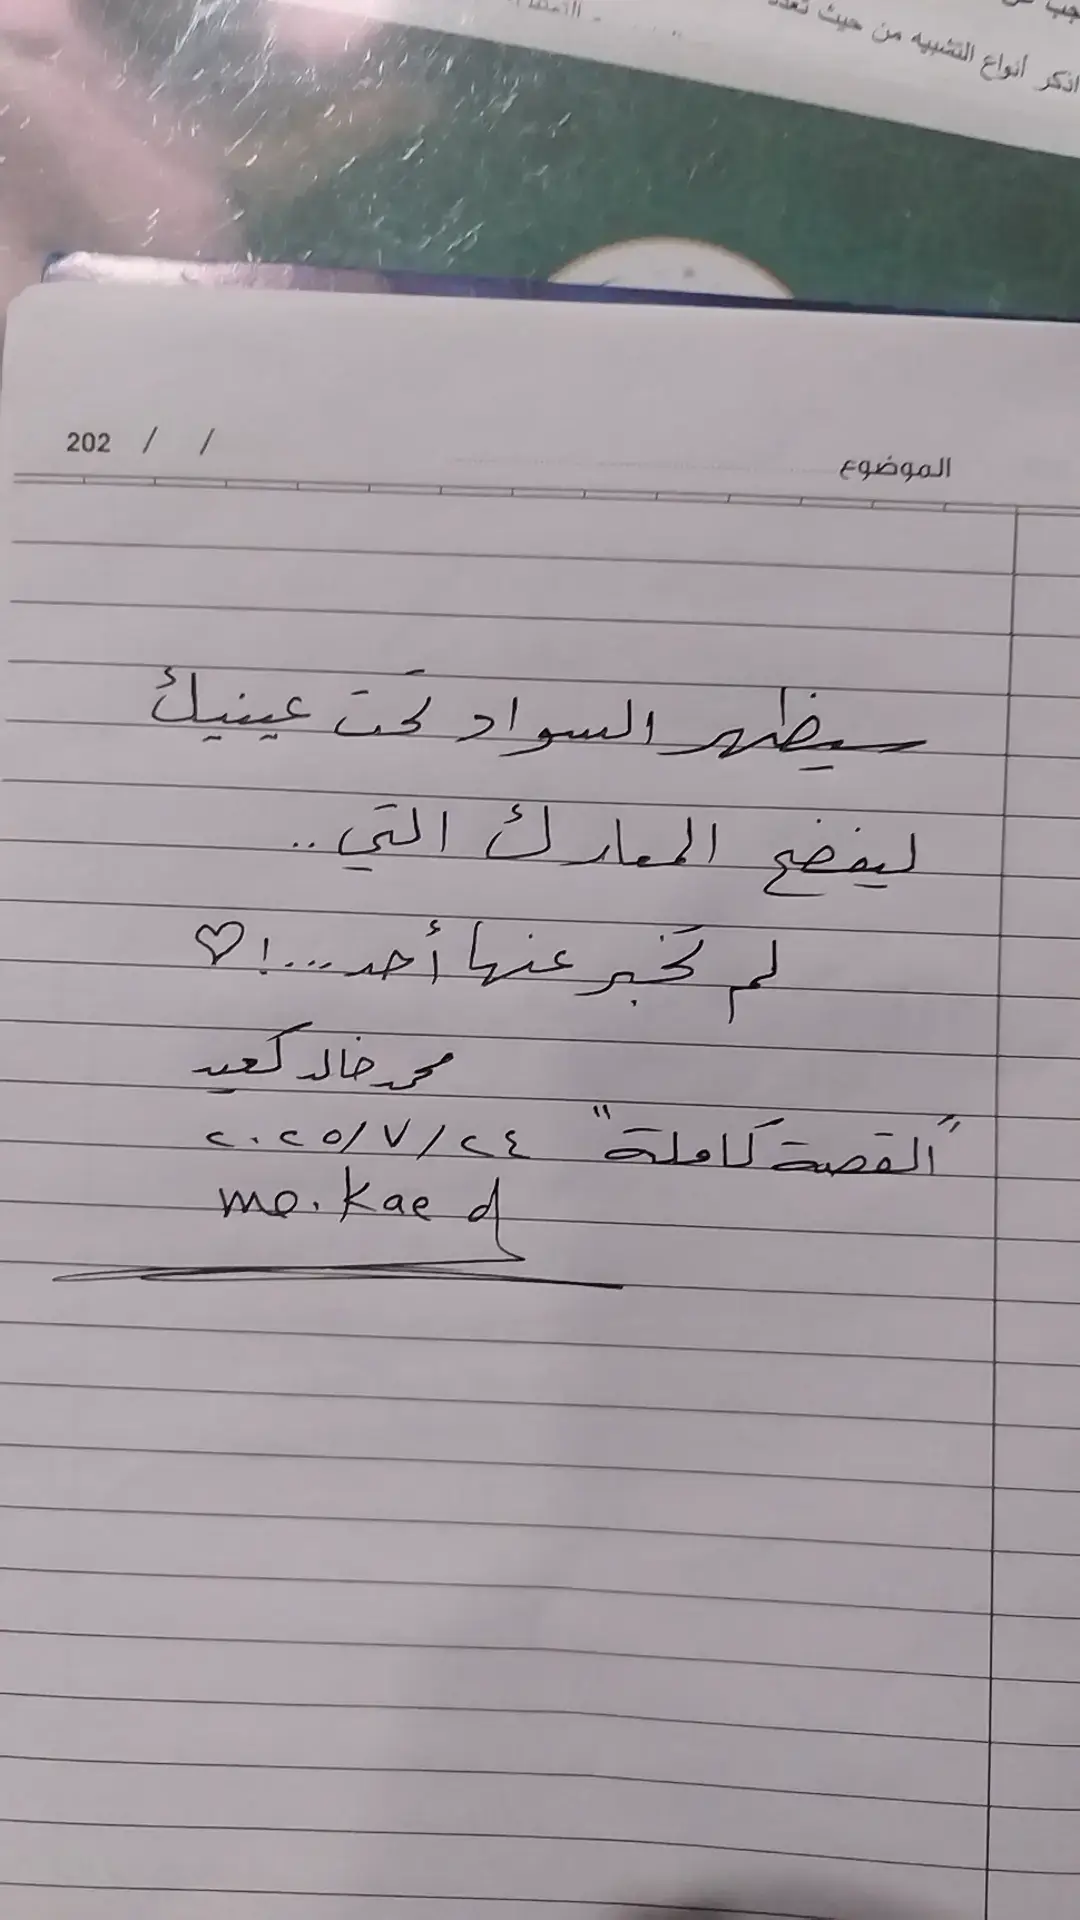 اذكر أنواع التشبيه من حيث تعدد
الموضوع
202 / /
سيظهر السواد تحت عينيك
ليفضح المعارك التي ..
لم تخبر عنها أحد...!♡
محمد خالد كعيد
"القصة كاملة" ٢٠٢٥/٧/٢٤
mo. kaed